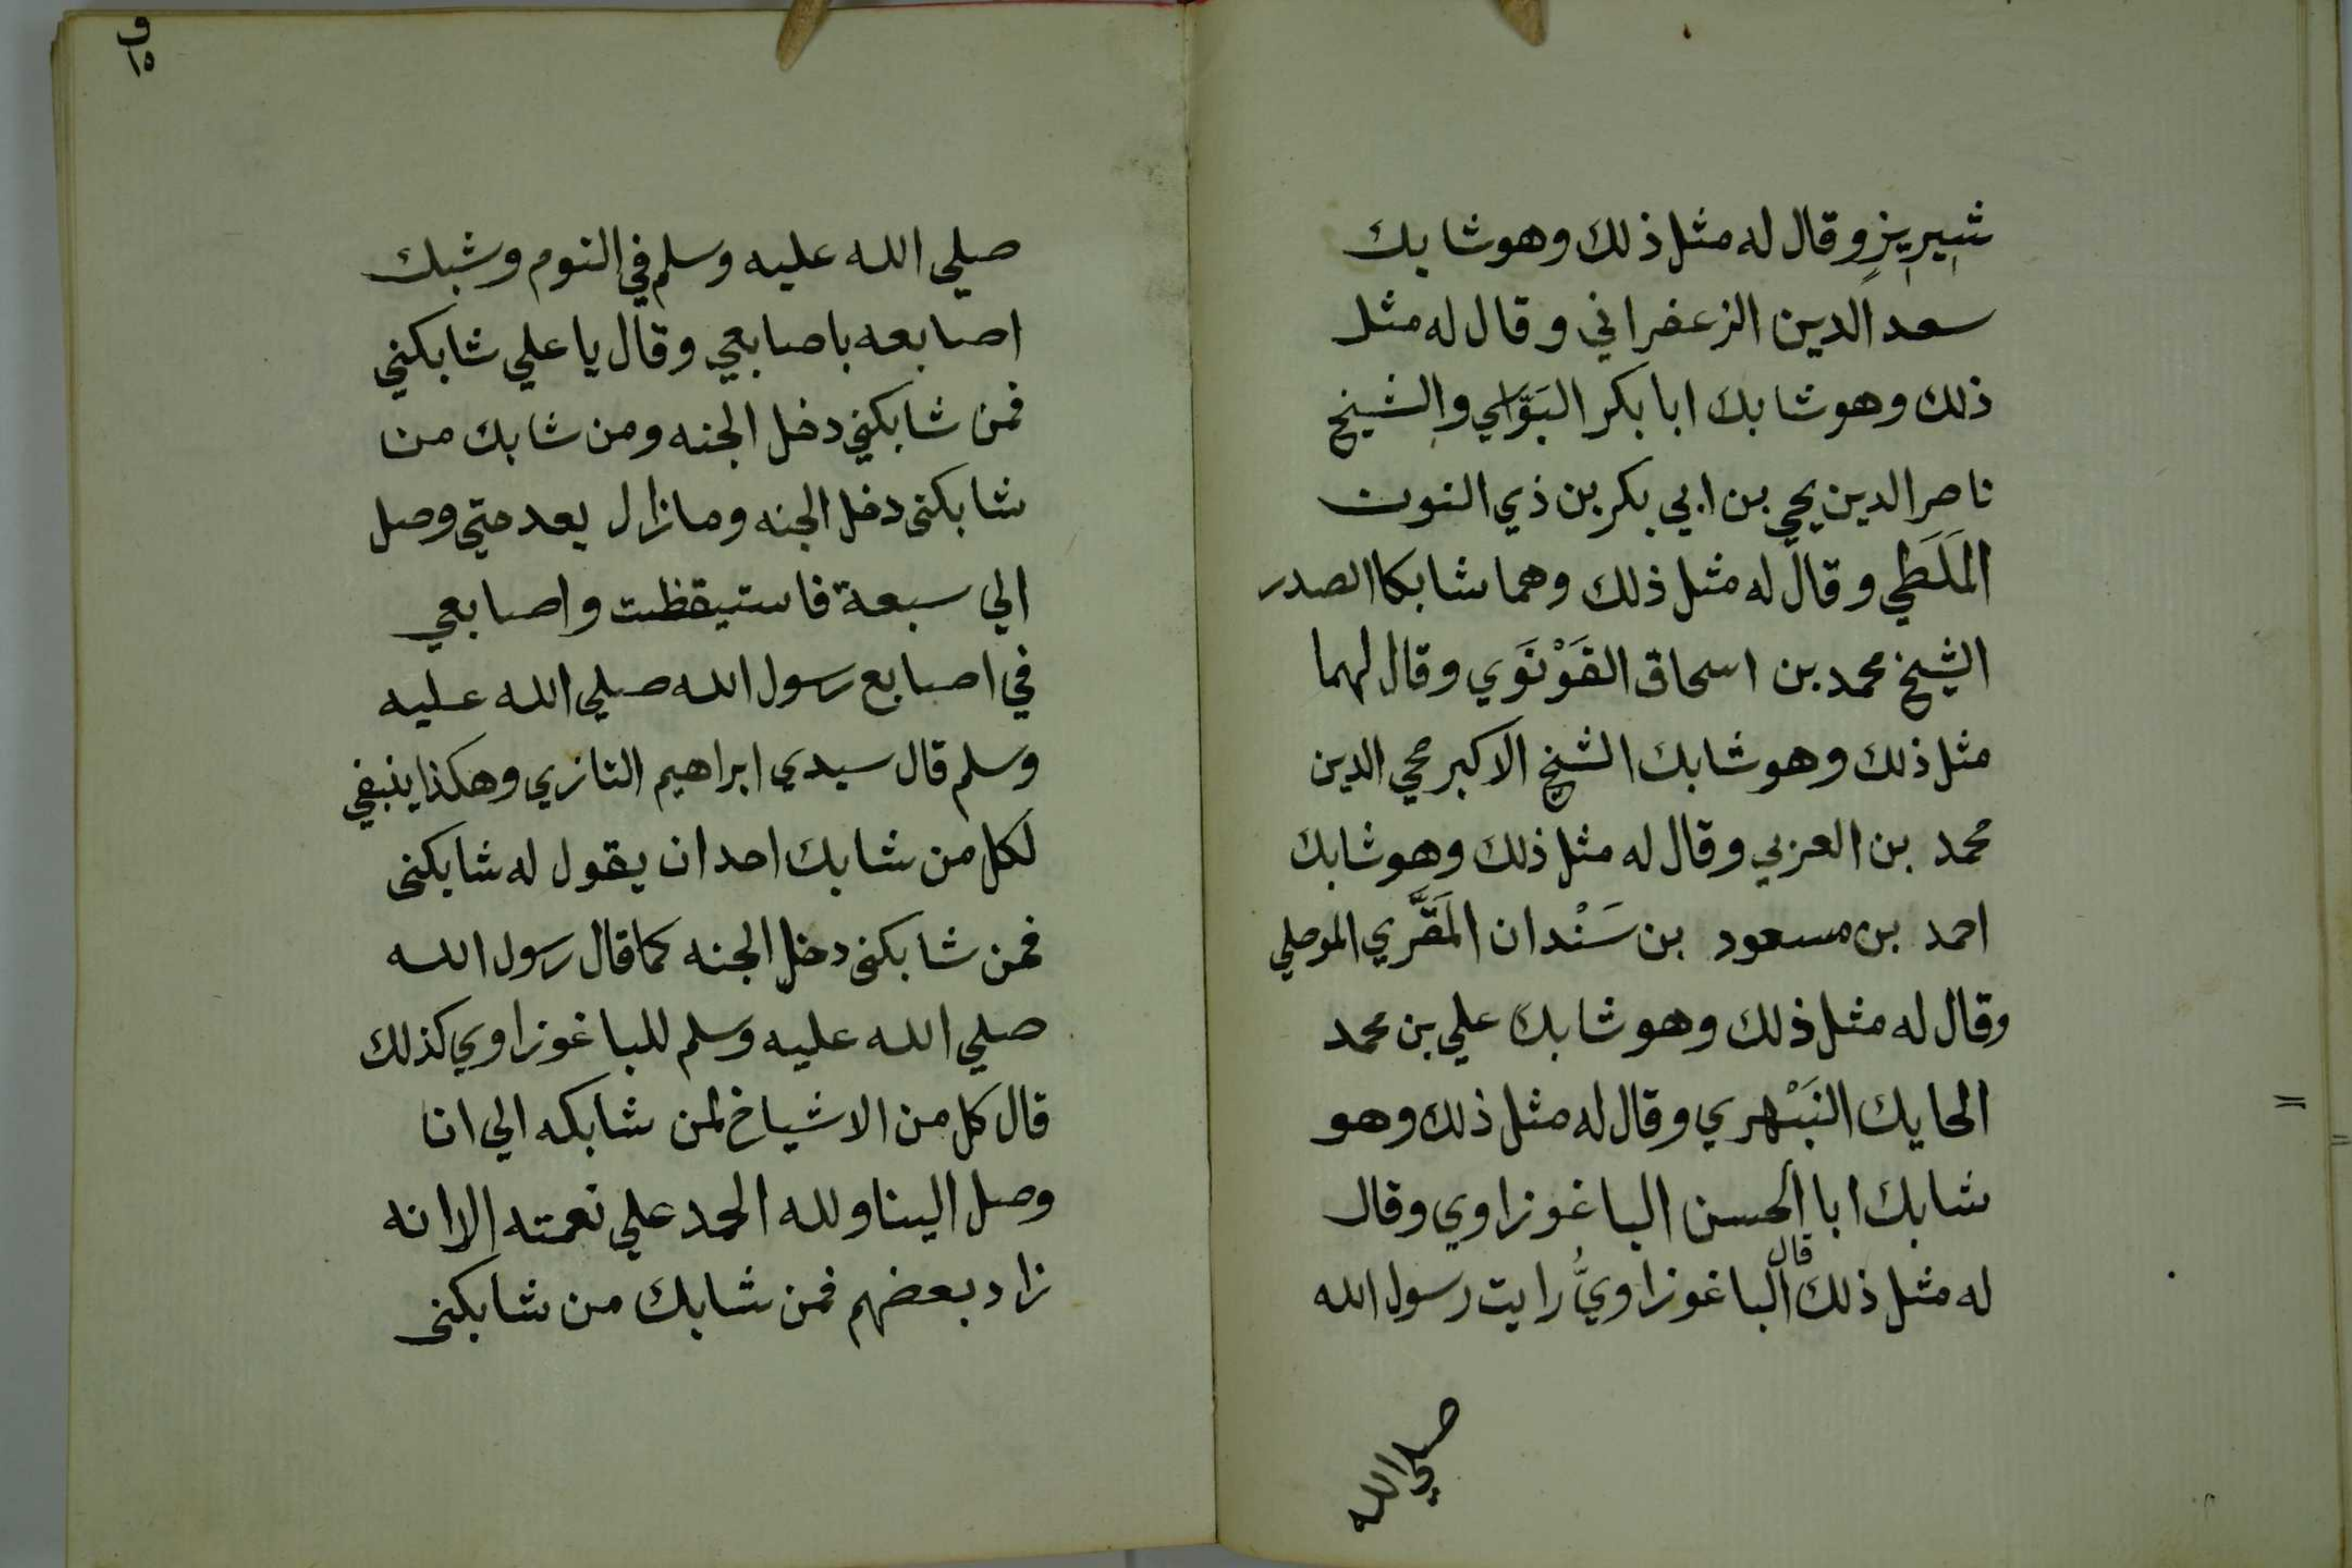 شيريزٍ وقال له مثل ذلك وهو شابك
سعد الدين الزعفراني وقال له مثل
ذلك وهو شابك ابا بكر البَوَّاسي والشيخ
ناصر الدين يحي بن ابي بكر بن ذي النون
المَلَطي وقال له مثل ذلك وهما شابكا الصدر
الشيخ محمد بن اسحاق القَوْنَوي وقال لهما
مثل ذلك وهو شابك الشيخ الاكبر محي الدين
محمد بن العربي وقال له مثل ذلك وهو شابك
احمد بن مسعود بن سَنْدان المَقَّري الموصلي
وقال له مثل ذلك وهو شابك علي بن محمد
الحايك النَبْهري وقال له مثل ذلك وهو
شابك ابا الحسن الباغوزاوي وقال
له مثل ذلك قال الباغوزاويُّ رايت رسول الله
صلي الله
ق
١٥
صلي الله عليه وسلم في النوم وشبك
اصابعه باصابعي وقال يا علي شابكني
فمن شابكني دخل الجنه ومن شابك من
شابكنى دخل الجنه وما زال يعد حتي وصل
الي سبعة فاستيقظت واصابعي
في اصابع رسول الله صلي الله عليه
وسلم قال سيدي ابراهيم التازي وهكذا ينبغي
لكل من شابك احد ان يقول له شابكنى
فمن شابكنى دخل الجنه كما قال رسول الله
صلي الله عليه وسلم للباغوزاوي كذلك
قال كل من الاشياخ لمن شابكه الي انا
وصل الينا ولله الحمد علي نعمته الا انه
زاد بعضهم فمن شابك من شابكنى